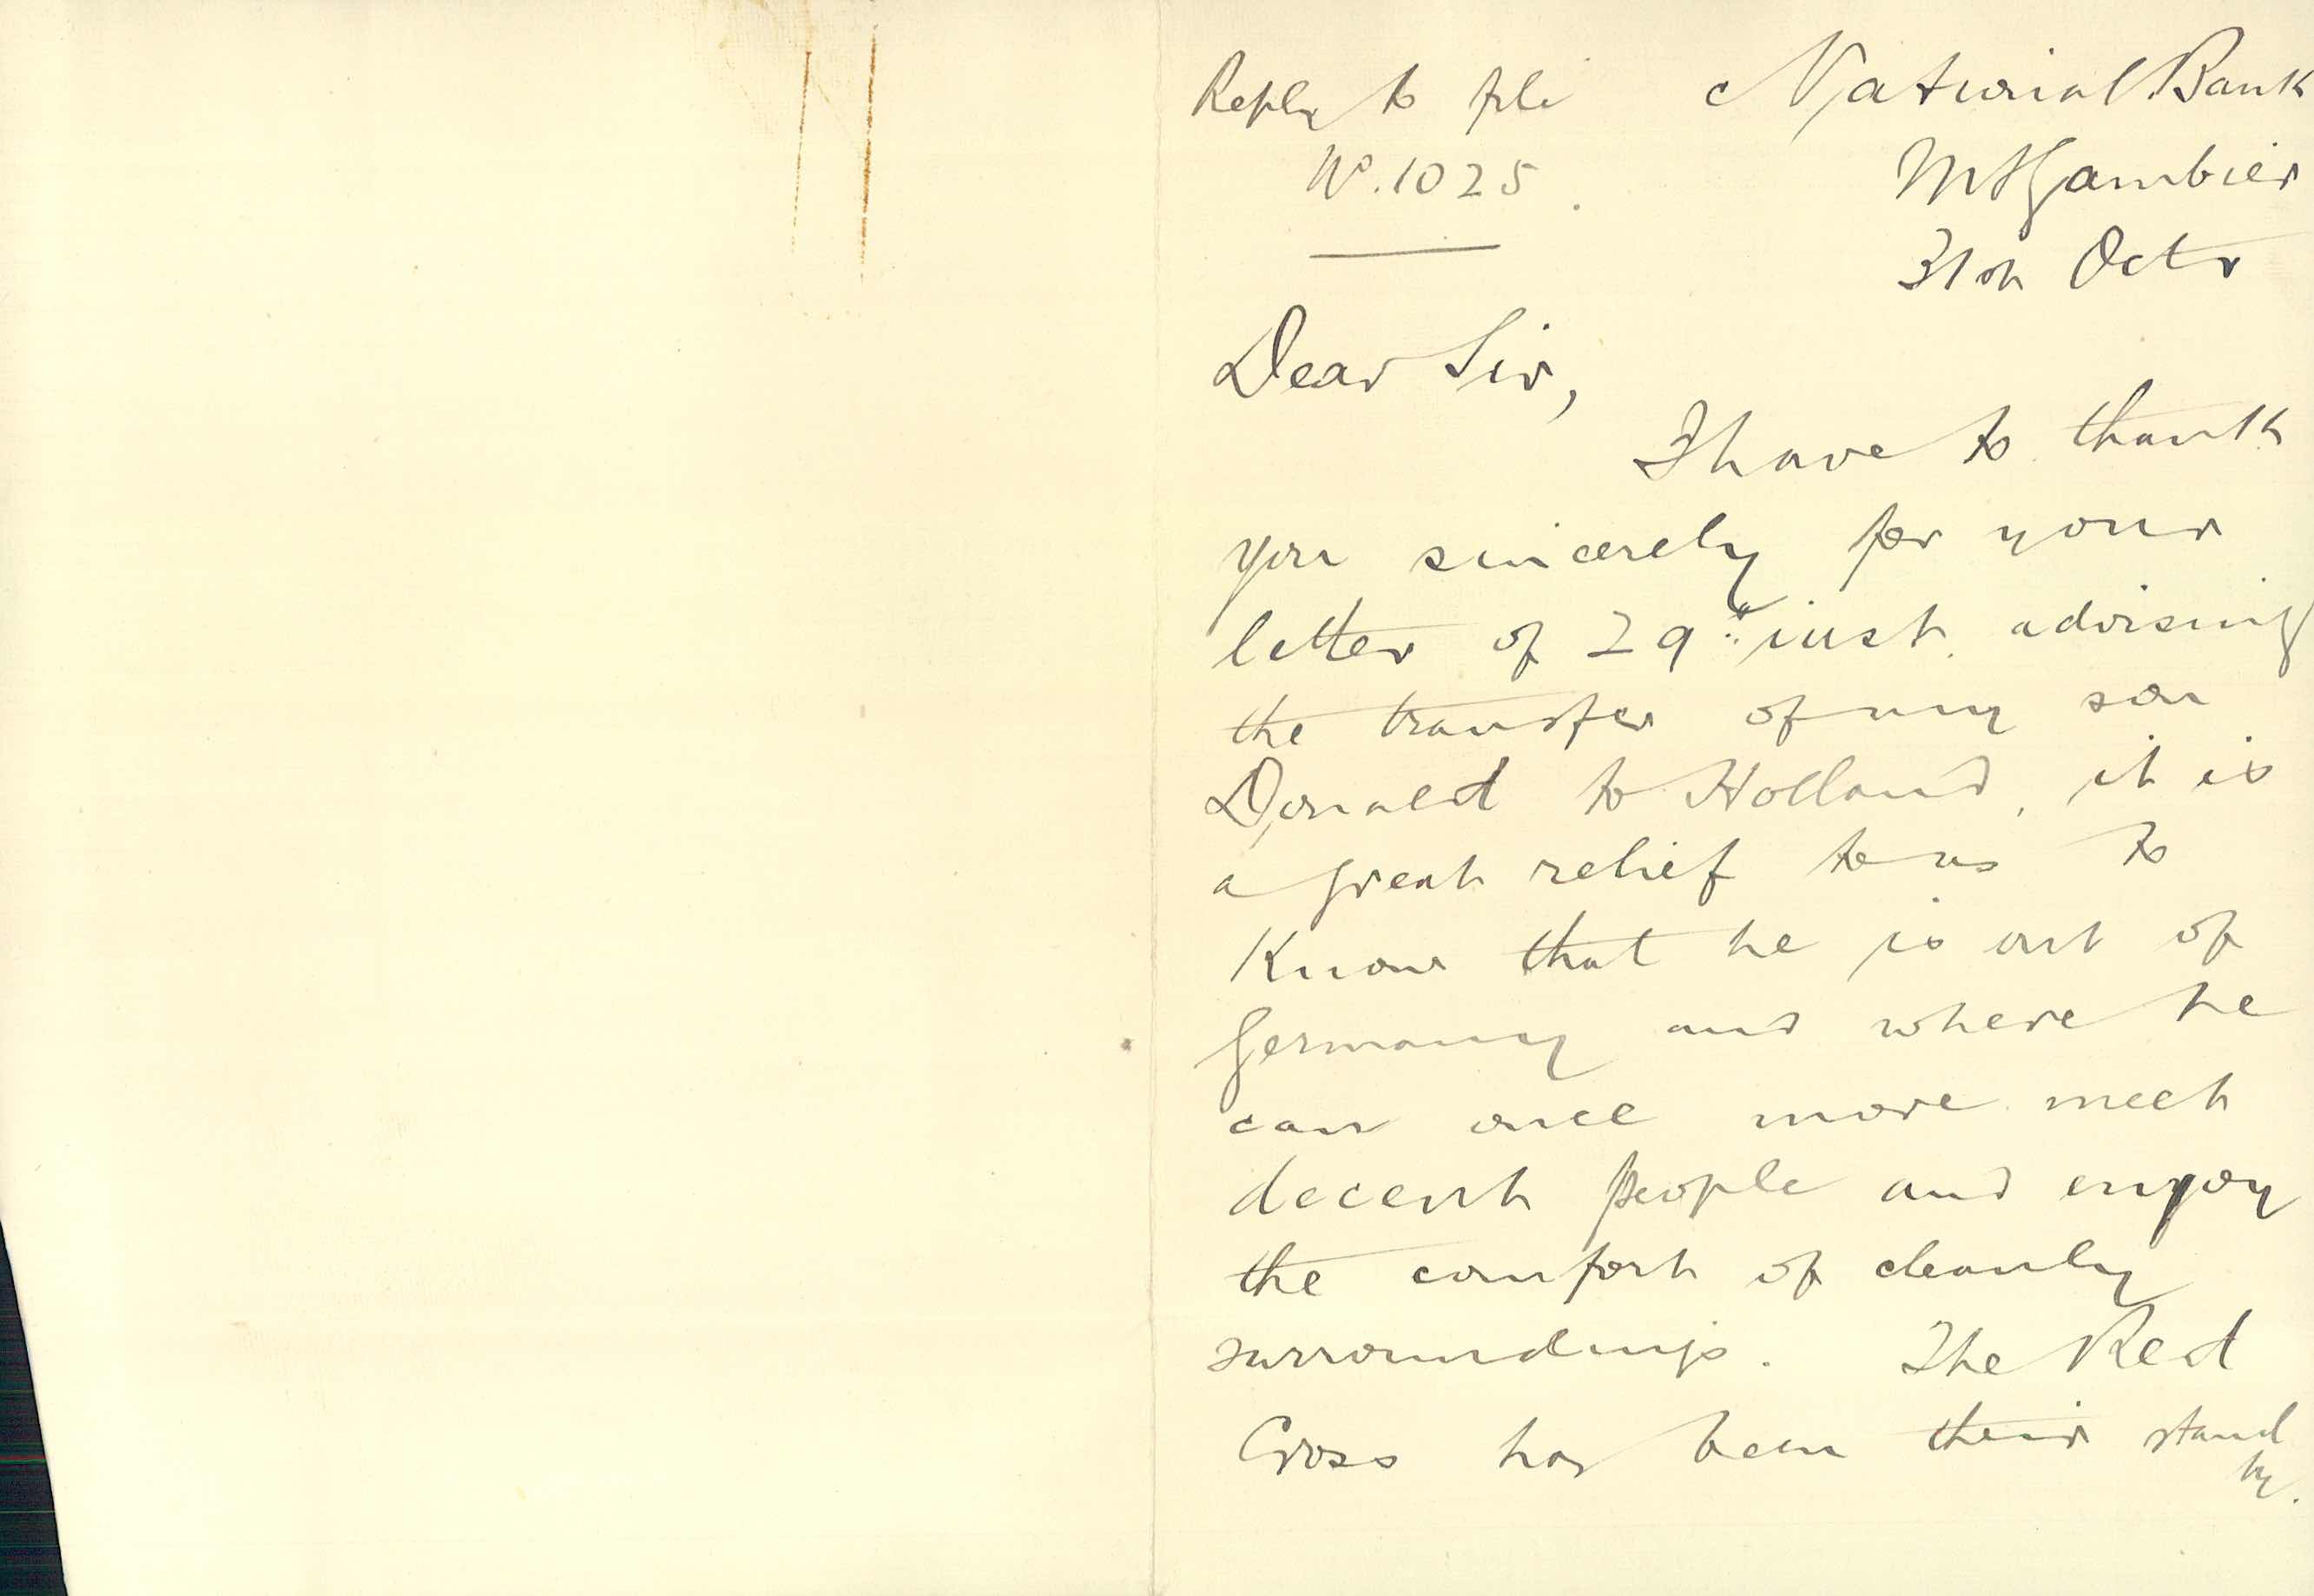 Reply to file
No. 1025.
National Bank
Mt Gambier
31st Octr
Dear Sir,
I have to thank
you sincerely for your
letter of 29th inst. advising
the transfer of my son
Donald to Holland, it is
a great relief to us to
Know that he is out of
Germany and where he
can once more meet
decent people and enjoy
the comfort of cleanly
surroundings. The Red
Cross has been their stand
by.